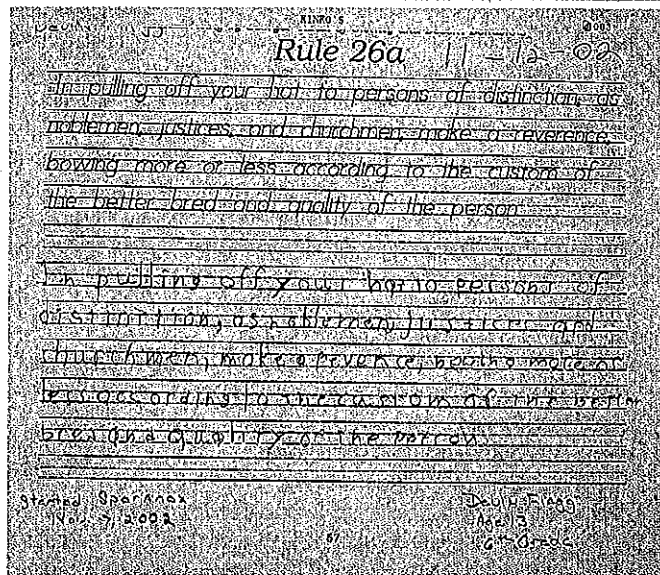 KINKO'S
Rule 26a 11-12-02
In pulling off your hat to persons of distinction, as
noblemen, justices, and churchmen, make a reverence,
bowing more or less according to the custom of
the better bred and quality of the person
In pulling off your hat to persons of
distinction, as noblemen, justices and
churchmen, make a revence, bowing more or
less according to the custom of the better
bred and quality of the person.
Started
Nov. 2002
Age 13
6th Grade